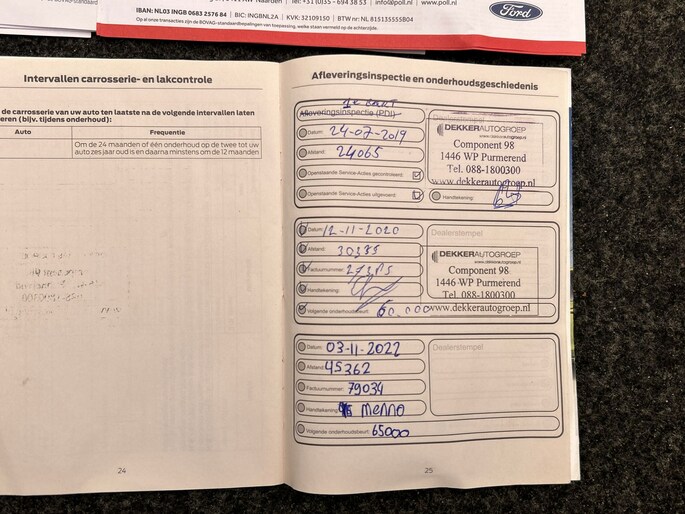 IBAN: NL03 INGB 0683 2576 84 | BIC: INGBNL2A | KVK: 32109150 | BTW nr: NL 815135555B04
Op al onze transacties zijn de BOVAG-standaardbepalingen van toepassing, welke staan vermeld op de achterzijde.
Ford
Intervallen carrosserie- en lakcontrole
de carrosserie van uw auto ten laatste na de volgende intervallen laten
eren (bijv. tijdens onderhoud):
Auto Frequentie
Om de 24 maanden of één onderhoud op de twee tot uw
auto zes jaar oud is en daarna minstens om de 12 maanden
24
Afleveringsinspectie en onderhoudsgeschiedenis
1e beurt
Afleveringsinspectie (PDI)
Datum: 24-07-2019
Afstand: 24065
Openstaande Service-Acties gecontroleerd:
Openstaande Service-Acties uitgevoerd:
DEKKERAUTOGROEP
www.dekkerautogroep.nl
Component 98
1446 WP Purmerend
Tel. 088-1800300
www.dekkerautogroep.nl
Handtekening:
Datum: 12-11-2020
Afstand: 30385
Factuurnummer:
Handtekening:
Volgende onderhoudsbeurt: 60.000
Dealerstempel
DEKKERAUTOGROEP
www.dekkerautogroep.nl
Component 98
1446 WP Purmerend
Tel. 088-1800300
www.dekkerautogroep.nl
Datum: 03-11-2022
Afstand: 45362
Factuurnummer: 79034
Handtekening: Menno
Volgende onderhoudsbeurt: 65000
Dealerstempel
25